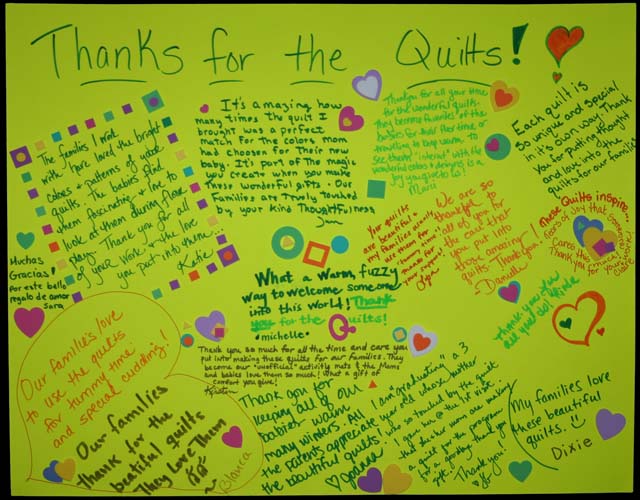 Thanks for the Quilts!
The families I work
with have loved the bright
colors + patterns of your
quilts. The babies find
them fascinating + love to
look at them during floor
play. Thank you for all
of your work + the love
you put into them...
Katie
It's amazing how
many times the quilt I
brought was a perfect
match for the colors mom
had chosen for their new
baby. It's part of the magic
you create when you make
these wonderful gifts. Our
Families are truly touched
by your kind thoughtfulness
Jan
Thankyou for all your time
for the wonderful quilts.
They become favorites of the
babies for
travelling to keep warm. To
see them "interact" with the
wonderful colors & designs is a
Each quilt is
so unique and special
in it's own way. Thank
you for putting thought
and love into the
quilts for our families!
Muchas
Gracias!
por este bello
regalo de amor
Sara
Your quilts
are beautiful &
my families
We are so
thankful to
all of you for
the care that
you put into
those amazing
quilts. Thank you!
Danielle
These Quilts inspire...
Thank you for
Thank you for
all you do!
What a warm, fuzzy
way to welcome someone
into this world! Thank
you for the Quilts!
michelle
Thank you so much for all the time and care you
put into making these quilts for our families. They
become our "unofficial" activity mats & the Moms
and babies love them so much! What a gift of
comfort you give!
Kristin
Our families love
to use the quilts
for tummy time
and special cuddling!
Blanca
Our families
thank for the
beatiful quilts
They Love Them
Thank you for
keeping all of our
babies warm
many winters. All
the parents appreciate
the beautiful quilts.
Joanna
I am "graduating" a 3
year old whose mother
was so touched by the quilt
I gave her @ the 1st visit
that she + her mom are making
a quilt for the program
for a
Thank you!
My families love
these beautiful
quilts.
Dixie